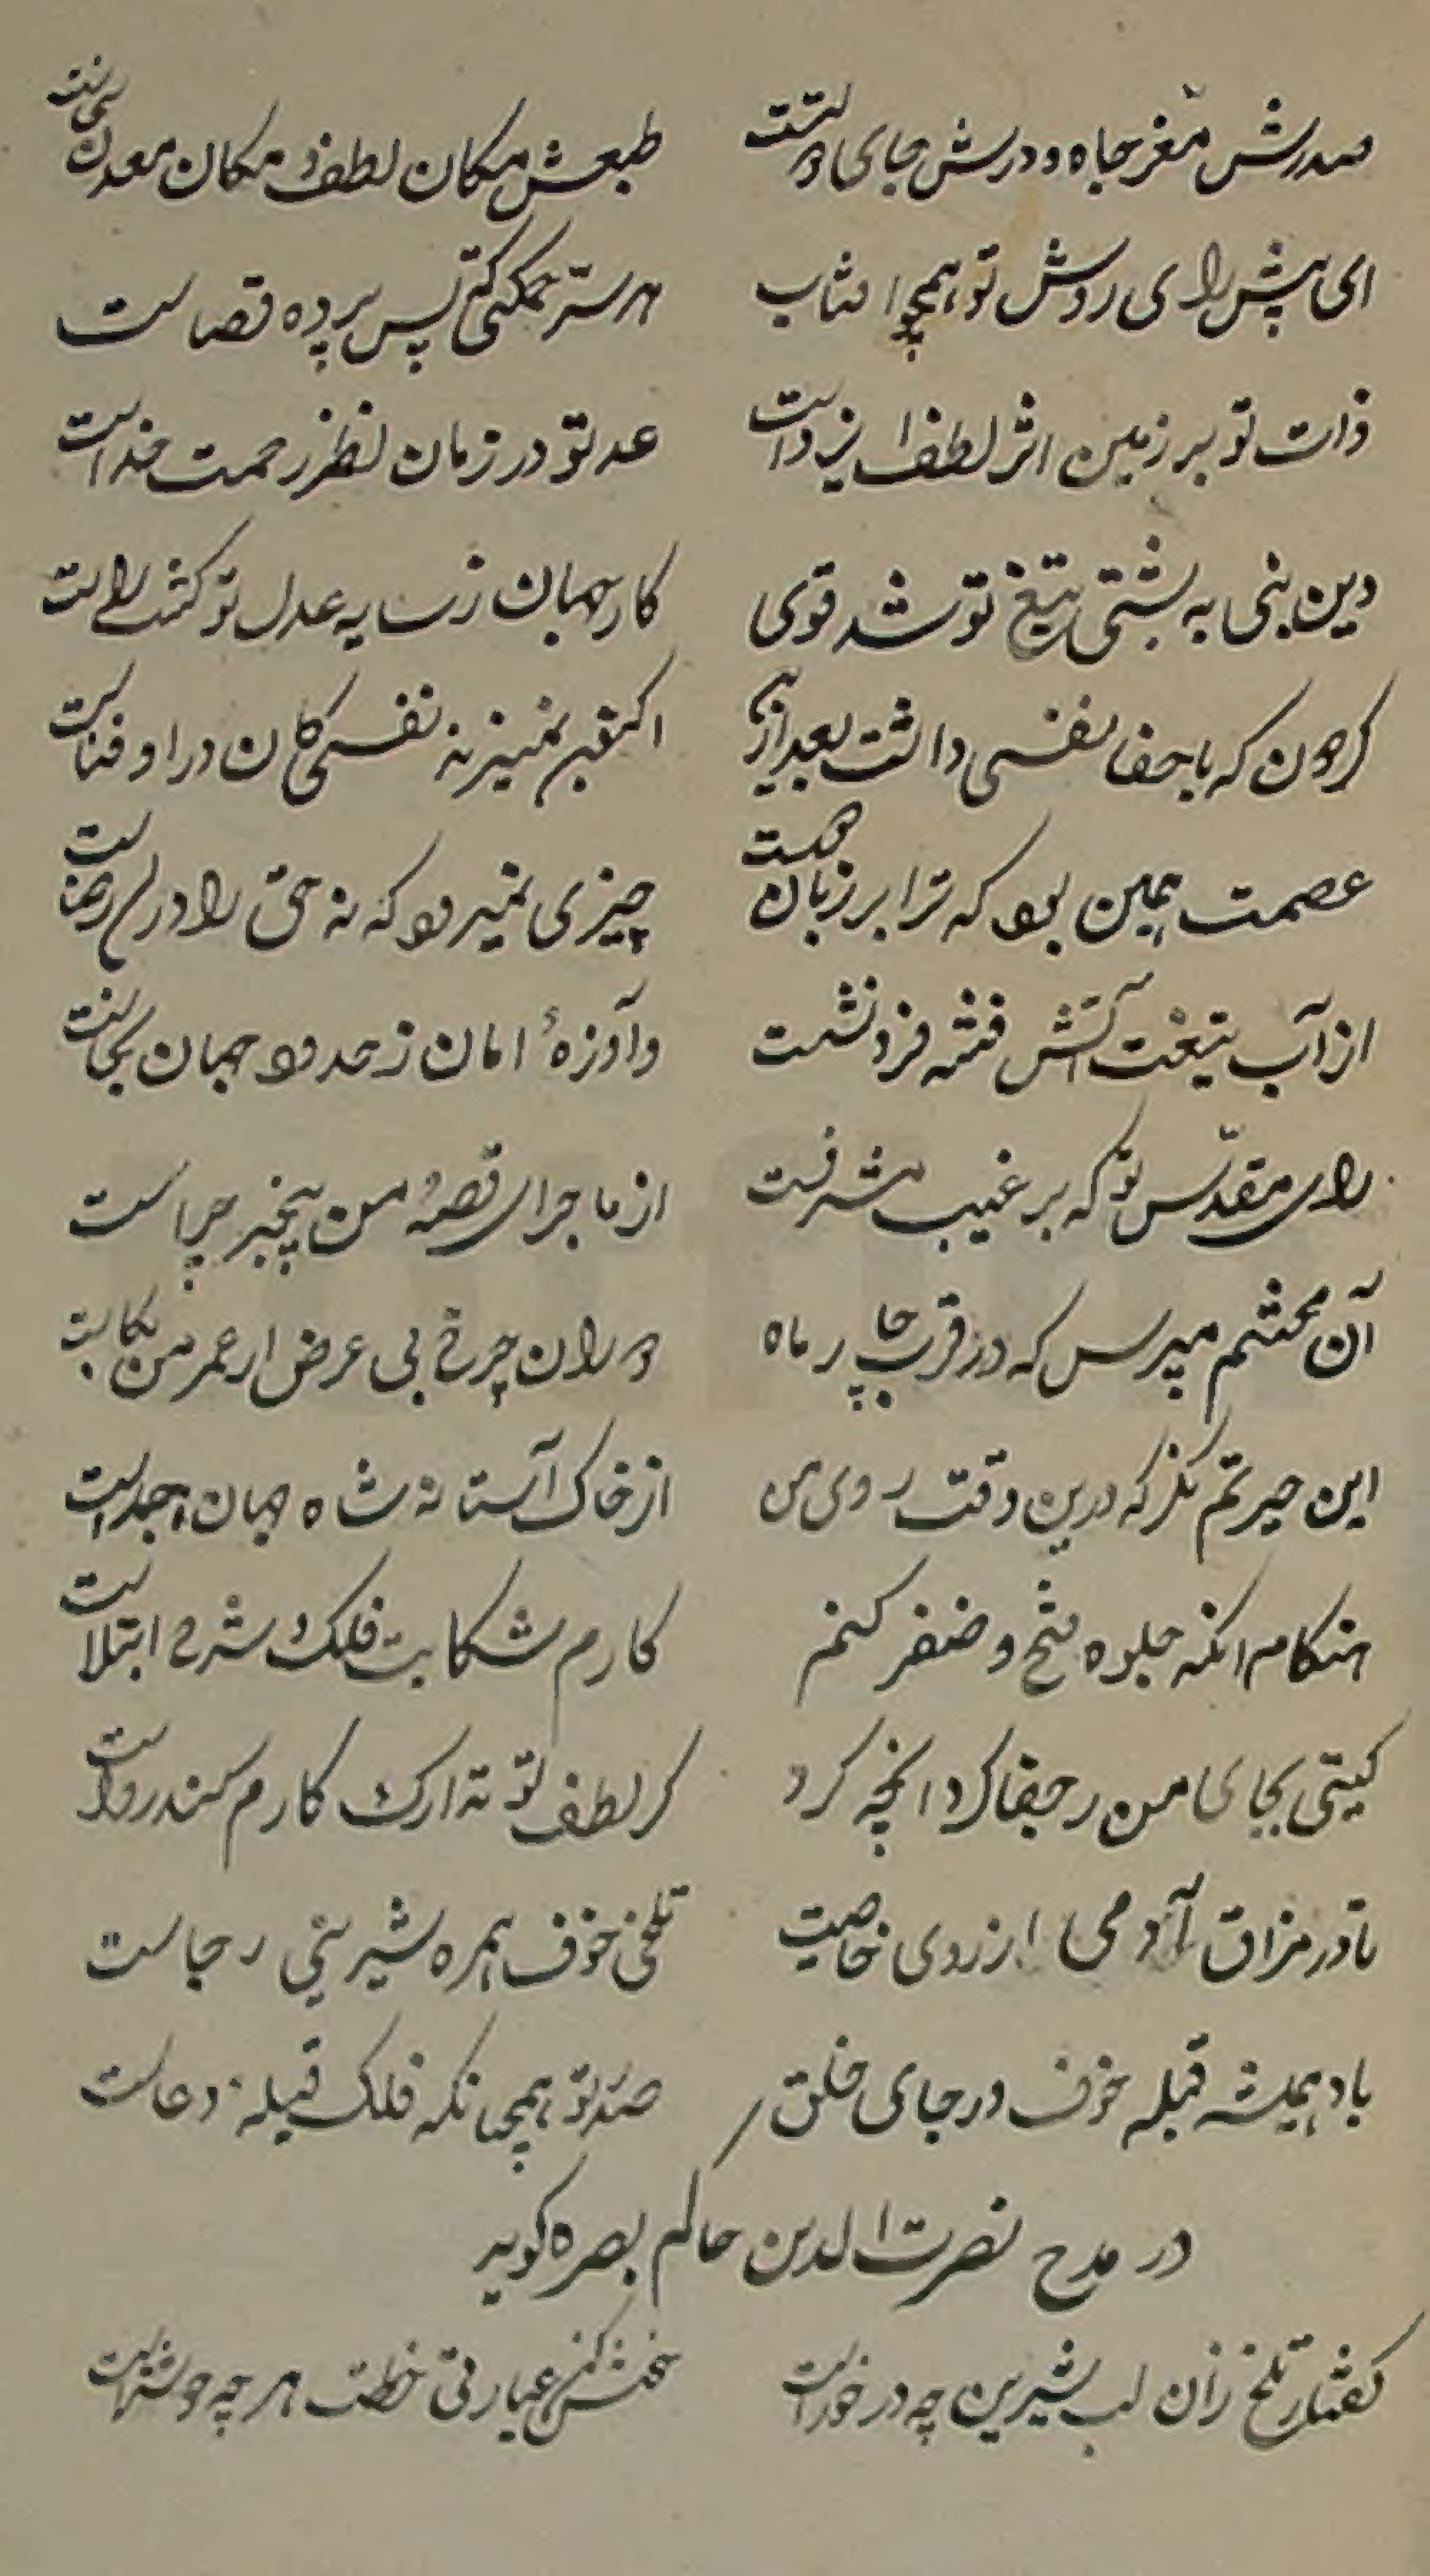 صدرش مغز جاه و درش جای دولتست طبعش مکان لطف و مکان معدن سخاست
ای پیش رای روشن تو همچو افتاب هر سر حکمتی که پس پرده قضاست
ذات تو بر زمین اثر لطف ایزدیست عدل تو در زمان نظر رحمت خداست
دین نبی به پشتی تیغ تو شد قوی کار جهان ز سایه عدل تو گشت راست
گردون که با جفا نفسی داشت بعد ازین نمیزند نفسی کان درو فناست
عصمت همین بود که ترا بر زبان چیزی نمیرود که نه حق را در رضاست
از آب تیغت آتش فتنه فرو نشست وآوازهٔ امان ز حدود جهان بخاست
رای مقدس تو که بر غیب مشرفست از ماجرای قصهٔ من بیخبر چراست
آن محتشم مپرس که در قرب چار ماه دوران چرخ بی عرض از عمر من بکاست
این حیرتم نگر که درین وقت روی من از خاک آستانه شاه جهان جداست
هنکام انکه جلوه فتح و ضفر کنم کارم شکایت فلک و شرح ابتلاست
کیتی بجای من ز جفا کرد انچه کرد کر لطف تو تدارک کارم کند رواست
تا در مزاق آدمی از روی خاصیت تلخی خوف همره شیرینی رجاست
باد همیشه قبله خوف و رجای خلق صدر تو همچنانکه فلک قبله دعاست
در مدح نصرت الدین حاکم بصره کوید
کفتار تلخ زان لب شیرین چه در خورست خطت هر چه خوشترست